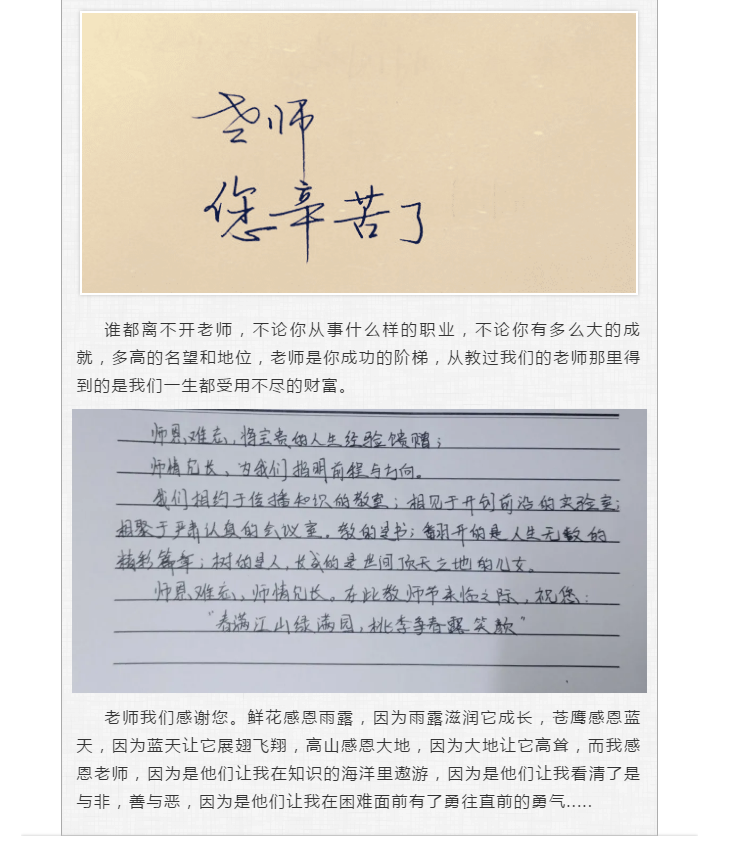 老师
您辛苦了
谁都离不开老师，不论你从事什么样的职业，不论你有多么大的成
就，多高的名望和地位，老师是你成功的阶梯，从教过我们的老师那里得
到的是我们一生都受用不尽的财富。
师恩难忘，将宝贵的人生经验馈赠；
师情冗长、为我们指明前程与方向。
我们相约于传播知识的教室；相见于开创前沿的实验室；
相聚于严肃认真的会议室。教的是书；翻开的是人生无数的
精彩篇章；树的是人，长成的是世间顶天立地的儿女。
师恩难忘、师情冗长。在此教师节来临之际，祝您：
“春满江山绿满园，桃李争春露笑颜”
老师我们感谢您。鲜花感恩雨露，因为雨露滋润它成长，苍鹰感恩蓝
天，因为蓝天让它展翅飞翔，高山感恩大地，因为大地让它高耸，而我感
恩老师，因为是他们让我在知识的海洋里遨游，因为是他们让我看清了是
与非，善与恶，因为是他们让我在困难面前有了勇往直前的勇气.....